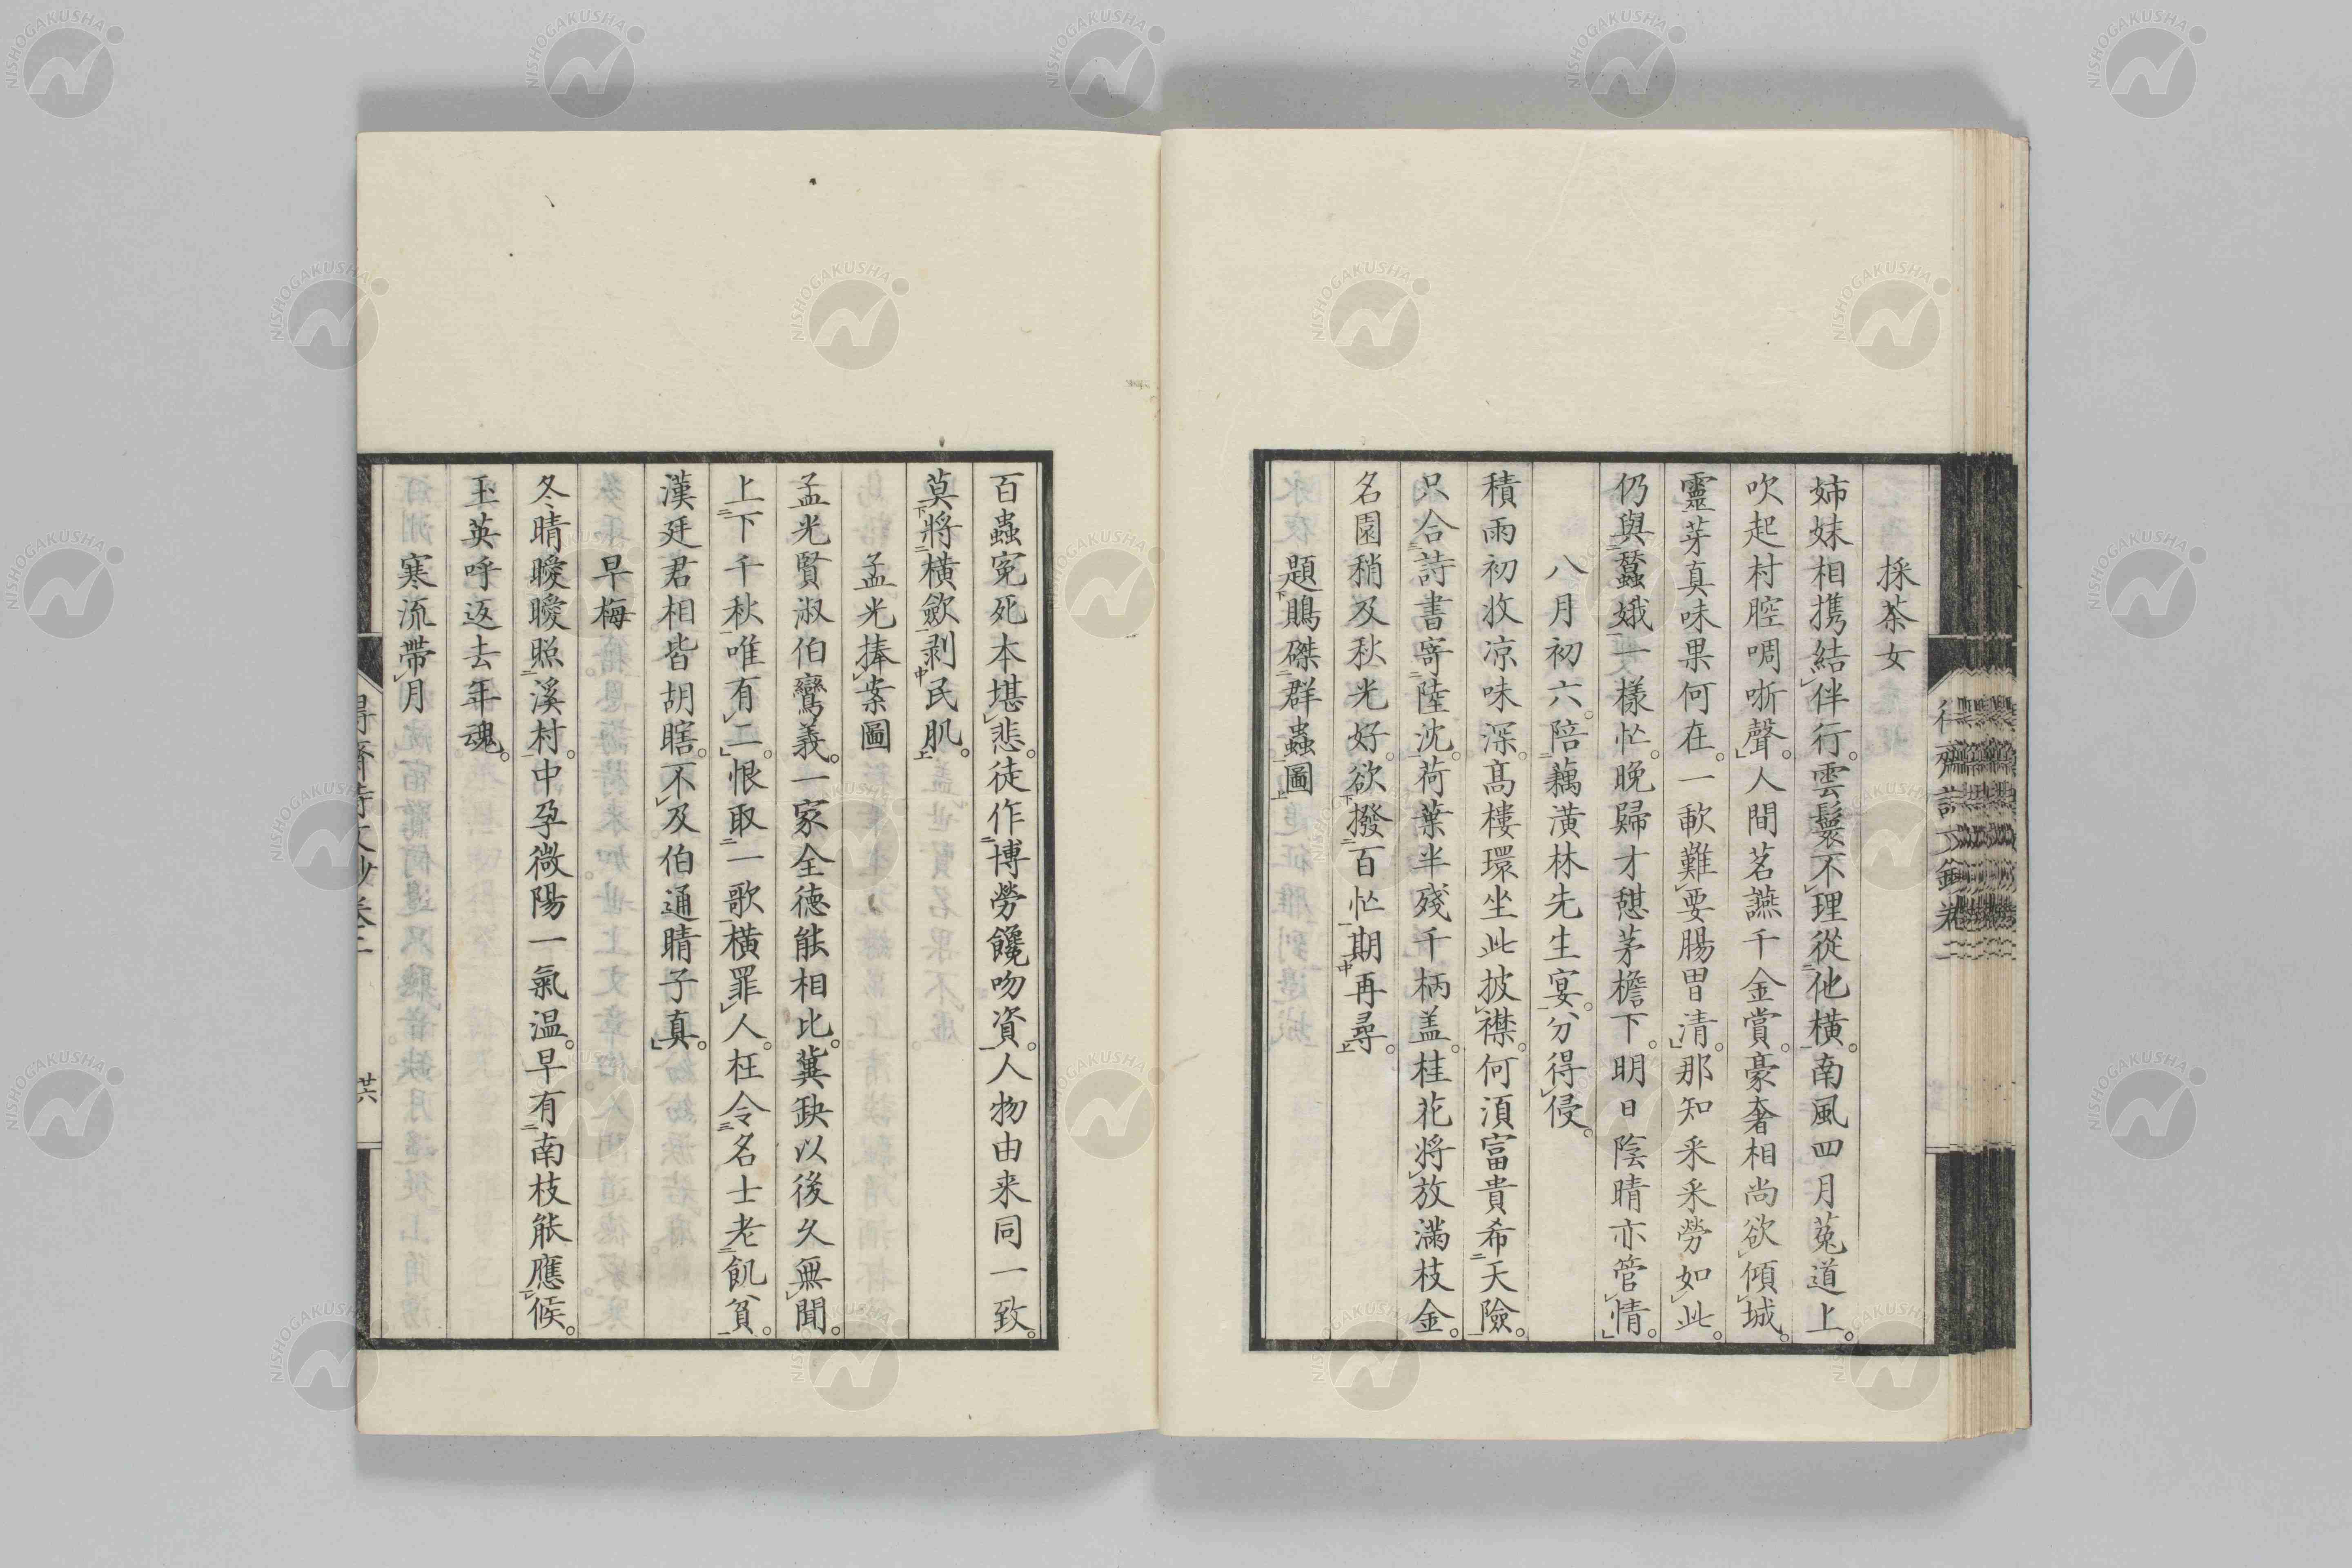 採茶女
姉妹相携結伴行。雲鬟不理從他橫。南風四月菟道上。
吹起村腔啁哳聲。人間茗讌千金賞。豪奢相尚欲傾城。
靈芽真味果何在。一歃難要腸胃清。那知采采勞如此。
仍與蠶娥一樣忙。晚歸才憩茅檐下。明日陰晴亦管情。
八月初六。陪藕潢林先生宴。分得侵。
積雨初收凉味深。髙樓環坐此披襟。何須富貴希天險。
只合詩書寄陸沈。荷葉半殘千柄盖。桂花將放滿枝金。
名園稍及秋光好。欲撥百忙期再尋。
題鵙磔群蟲圖
百蟲冤死本堪悲。徒作博勞饞吻資。人物由来同一致。
莫將橫歛剥民肌。
孟光捧案圖
孟光賢淑伯鸞義。一家全德能相比。冀缺以後久無聞。
上下千秋唯有二。恨取一歌橫罪人。枉令名士老飢貧。
漢廷君相皆胡瞎。不及伯通晴子真。
早梅
冬晴曖曖照溪村。中孕微陽一氣温。早有南枝能應候。
玉英呼返去年魂。
寒流帶月
得齋詩文鈔卷二
廿六
NISHOGAKUSHA